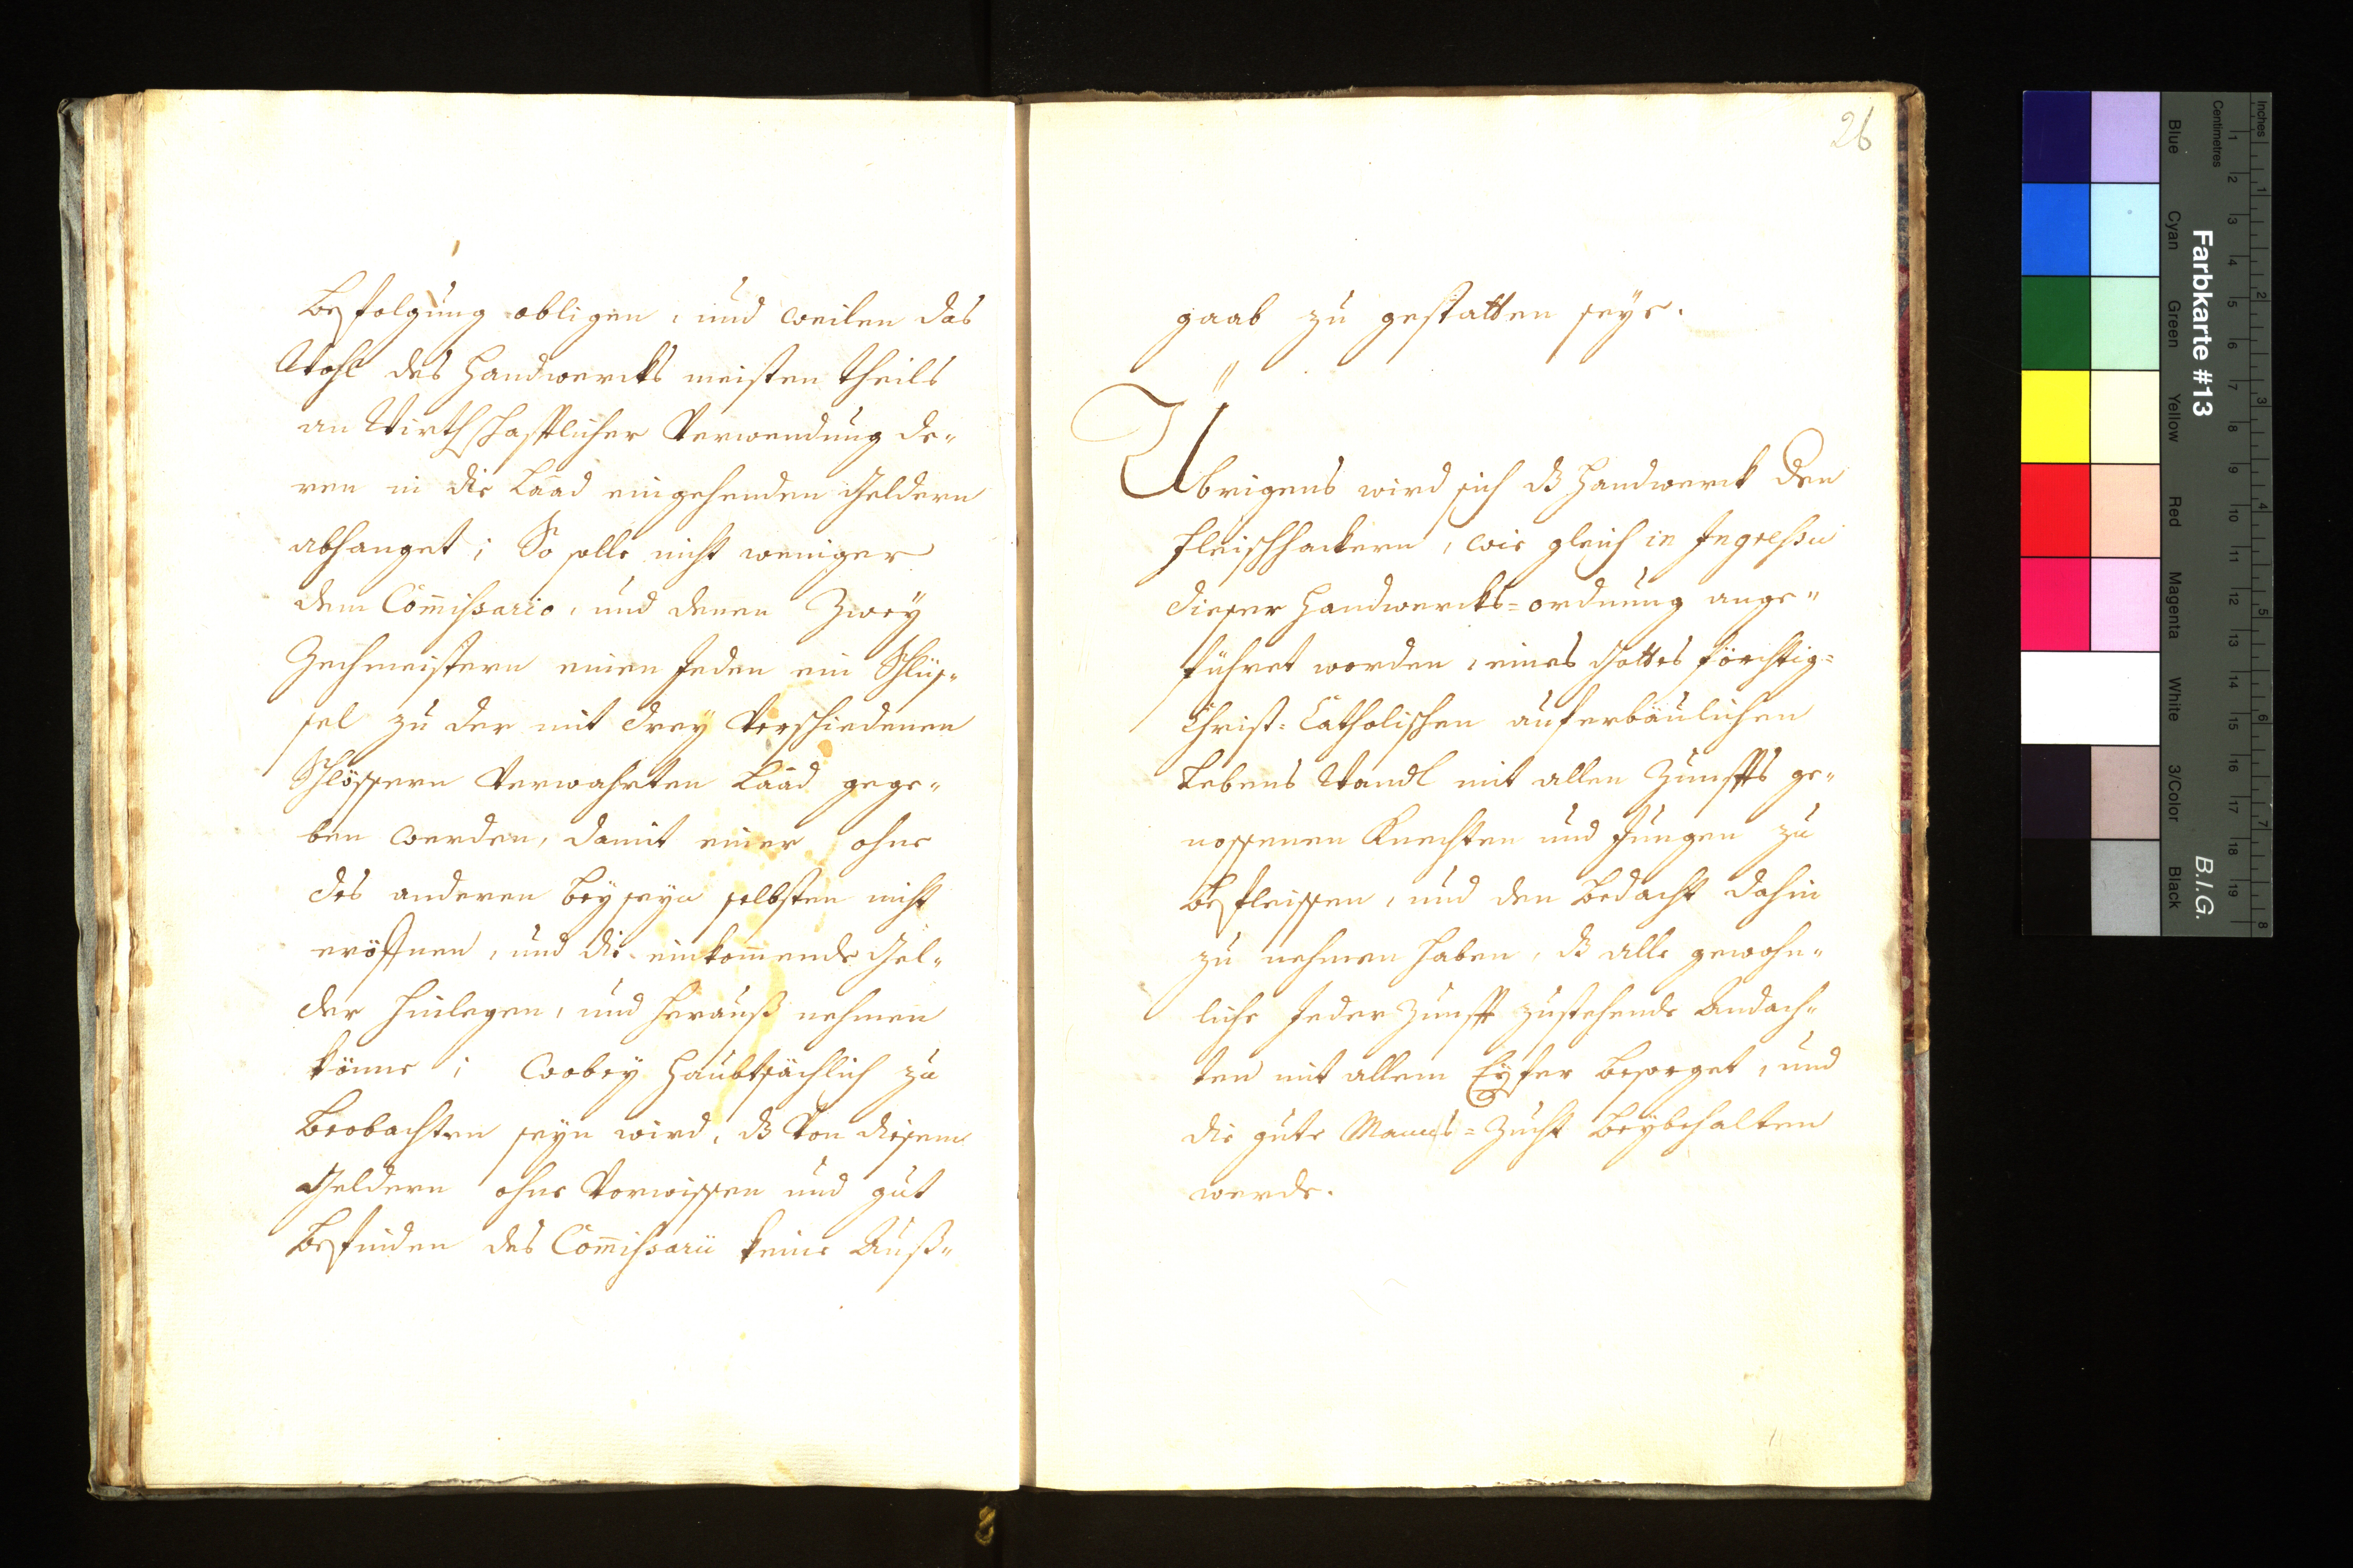 Befolgung obligen, und weilen das
Wohl des Handwercks meisten theils
an Wirthschafftlicher Verwendung de„
ren in die Laad eingehenden Geldern
abhanget; So solle nicht weniger
dem Com̄issario, und denen Zwey
Zechmeistern einen Jeden ein Schlüs„
sel zu der mit drey Verschiedenen
Schlössern Verwahrten Laad gege„
ben werden, damit einer ohne
des anderen beyseyn selbsten nicht
eröffnen, und die einkom̄ende Gel„
der hinlegen, und herauß nehmen
könne; Wobey haubtsächlich zu
beobachten seyn wird, dß Von diesem
Geldern ohne Vorwissen und gut
befinden des Com̄issarii keine Auß„
26
gaab zu gestatten seye.
Übrigens wird sich dß Handwerck den
Fleischhackern, wie gleich in Ingressu
dieser Handwercks=ordnung ange„
führet worden, eines Gottes förchtig=
Christ=Catholischen auferbäulichen
Lebens Wandl mit allen Zunffts ge„
nossenen Knechten und Jungen zu
befleissen, und den bedacht dahin
zu nehmen haben, dß alle gewohn„
liche Jeder Zunfft zustehende Andach„
ten mit allem Eyfer besorget, und
die gute Manns=Zucht beybehalten
werde.
Farbkarte #13
B.I.G.
Inches
Centimetres
1 2 3 4 5 6 7 8 9 10 11 12 13 14 15 16 17 18 19
1 2 3 4 5 6 7 8
Blue
Cyan
Green
Yellow
Red
Magenta
White
3/Color
Black